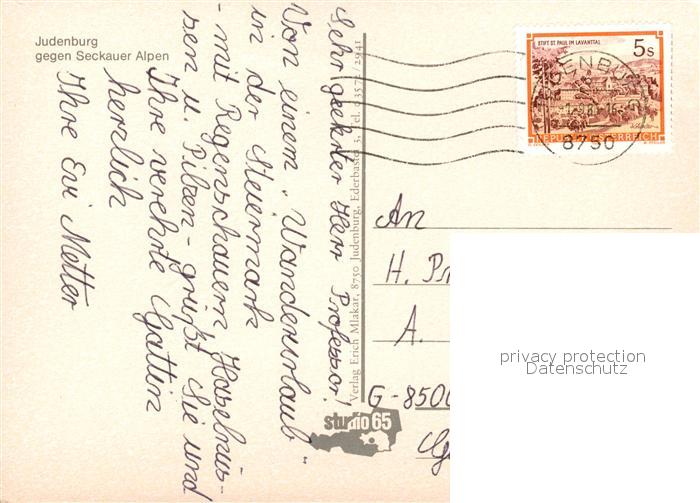 Judenburg
gegen Seckauer Alpen
Sehr geehrter Herr Professor!
Von einem „Wanderurlaub"
in der Steiermark
- mit Regenschauern, Haselnüs-
sen u. Pilzen - grüßt Sie und
Ihre verehrte Gattin
herzlich
Ihre Evi Metter
Verlag Erich Mlakar, 8750 Judenburg, Ederbastei 3, Tel. 0 35 72 / 29 41
studio 65
STIFT ST. PAUL IM LAVANTTAL
5 S
REPUBLIK ÖSTERREICH
JUDENBURG
8750
An
H. Pr
A.
G-8500
privacy protection
Datenschutz